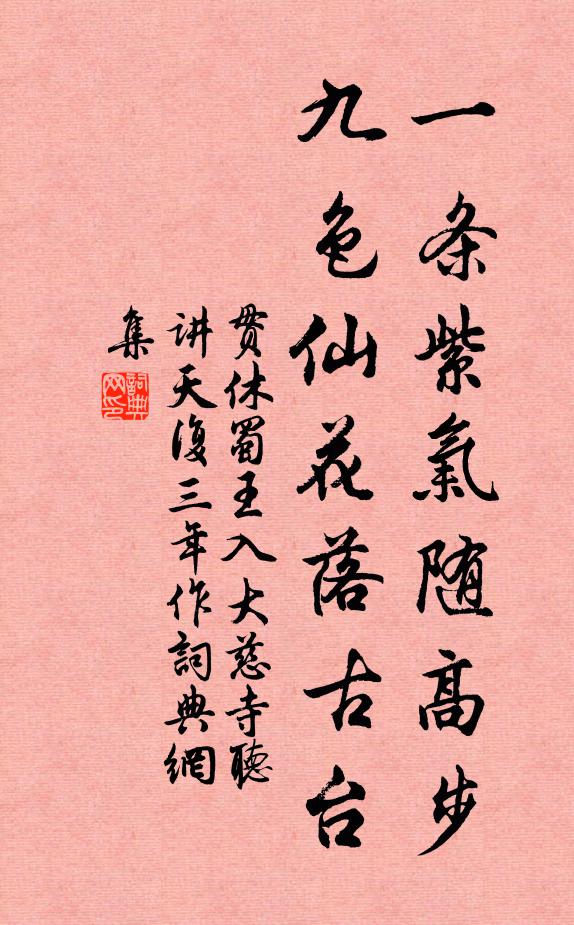 一条紫氣随高步
九色仙花落古台
贯休蜀王入大慈寺聽
讲天復三年作詞典網
集
詞典
网印